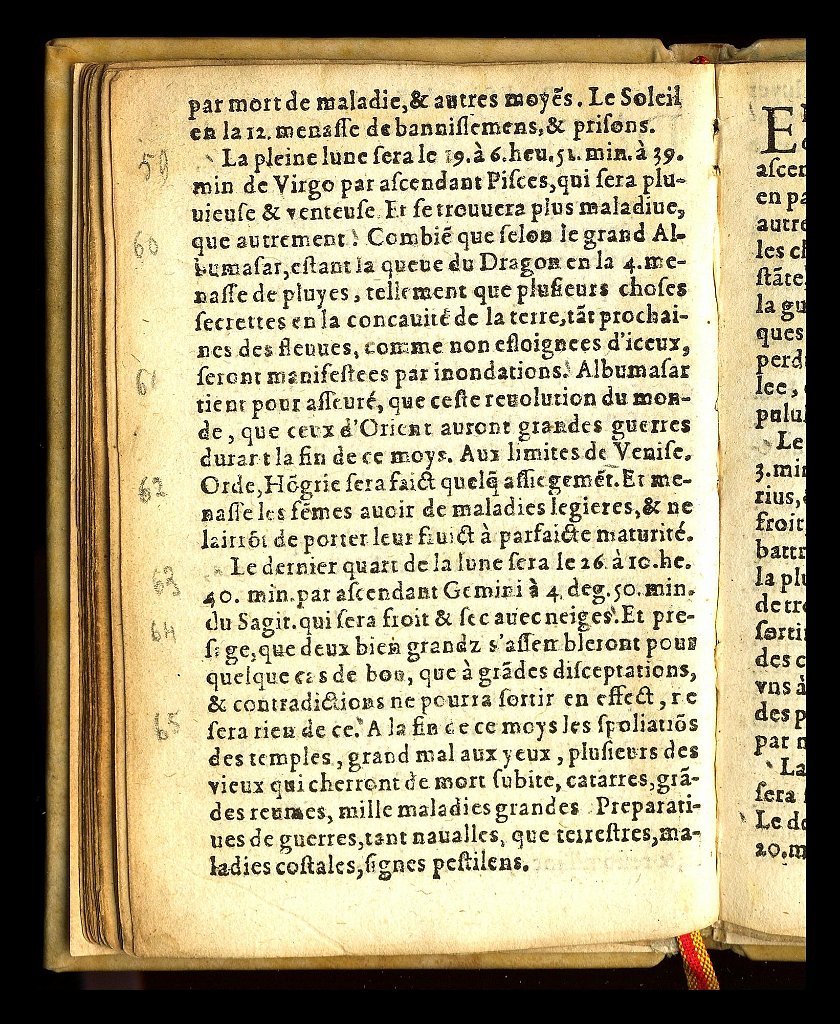 par mort de maladie, & autres moyẽs. Le Soleil
en la 12. menaſſe de banniſſemens, & priſons.
59
La pleine lune ſera le 19. à 6. heu. 51. min. à 39.
min de Virgo par aſcendant Piſces, qui ſera plu-
uieuſe & venteuſe. Et ſe trouuera plus maladiue,
60
que autrement. Combiẽ que ſelon le grand Al-
bumaſar, eſtant la queue du Dragon en la 4. me-
naſſe de pluyes, tellement que pluſieurs choſes
ſecrettes en la concauité de la terre, tãt prochai-
nes des fleuues, comme non eſloignees d'iceux,
61
ſeront manifeſtees par inondations. Albumaſar
tient pour aſſeuré, que ceſte reuolution du mon-
de, que ceux d'Orient auront grandes guerres
durant la fin de ce moys. Aux limites de Veniſe.
62
Orde, Hõgrie ſera faict quelq̃ aſſiegemẽt. Et me-
naſſe les fẽmes auoir de maladies legieres, & ne
lairrõt de porter leur fruict à parfaicte maturité.
63
Le dernier quart de la lune ſera le 26. à 10. he.
40. min. par aſcendant Gemini à 4. deg. 50. min.
64
du Sagit. qui ſera froit & ſec auec neiges. Et pre-
ſage, que deux bien grandz s'aſſembleront pour
quelque cas de bon, que à grãdes diſceptations,
& contradictions ne pourra ſortir en effect, ne
65
ſera rien de ce. A la fin de ce moys les ſpoliatiõs
des temples, grand mal aux yeux, pluſieurs des
vieux qui cherront de mort ſubite, catarres, grã-
des reumes, mille maladies grandes. Preparati-
ues de guerres, tant naualles, que terreſtres, ma-
ladies coſtales, ſignes peſtilens.
E
aſcen
en pa
autre
les ch
ſtãte
la gu
ques
perd
lee,
pulu
Le
3. min
rius,
froit
battr
la plu
de tre
ſorti
des c
vns à
des p
par m
La
ſera
Le de
20. m